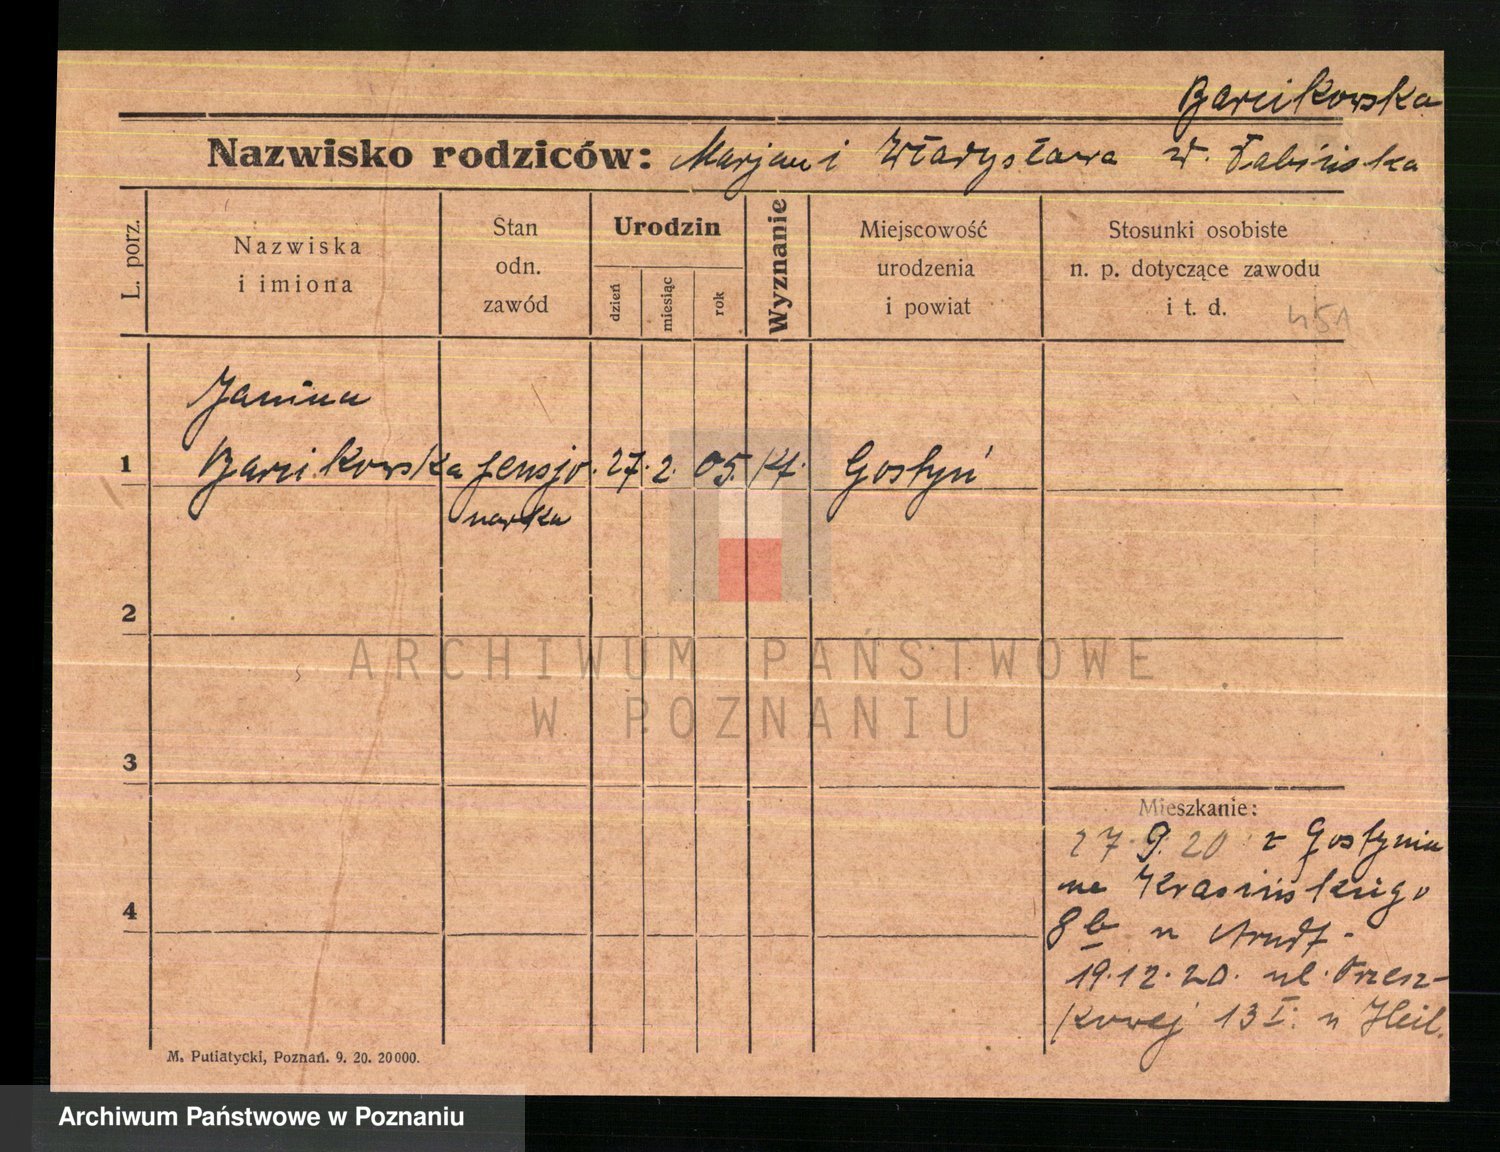 Barcikowska
Nazwisko rodziców: Marjan i Władysława
L. porz.
Nazwiska
i imiona
Stan
odn.
zawód
Urodzin
dzień
miesiąc
rok
Wyznanie
Miejscowość
urodzenia
i powiat
Stosunki osobiste
n. p. dotyczące zawodu
i t. d.
451
Janina
1 Barcikowska pensjo. 27. 2. 05. kt. Gostyń
narka
2
3
4
Mieszkanie:
27.9.20 z Gostynia
na Krasińskiego
8b u Arndt.
19.12.20. ul. Orzesz-
kowej 13 I. u Heil.
M. Putiatycki, Poznań. 9. 20. 20000.
ARCHIWUM PAŃSTWOWE
W POZNANIU
Archiwum Państwowe w Poznaniu